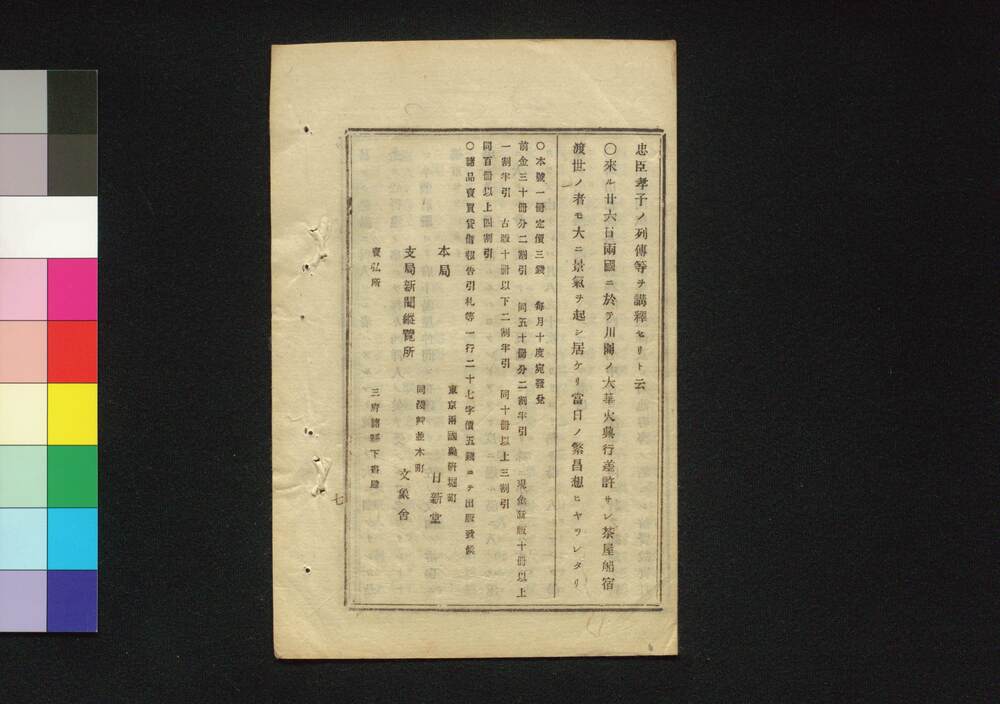 忠臣孝子ノ列傳等ヲ講釋セリト云
〇來ル廿六日兩國ニ於テ川開ノ大華火興行差許サレ茶屋船宿
渡世ノ者モ大ニ景氣ヲ起シ居ケリ當日ノ繁昌想ヒヤラレタリ
〇本號一冊定價三錢 每月十度宛發兌
前金三十冊分二割引 同五十冊分二割半引 現金新版十冊以上
一割半引 古版十冊以下二割半引 同十冊以上三割引
同百冊以上四割引
〇諸品賣買貸借報告引札等一行二十七字價五錢ニテ出版致候
本局 東京兩國藥研堀町 日新堂
支局新聞縱覽所 同淺艸並木町 文象舍
賣弘所 三府諸縣下書肆
七